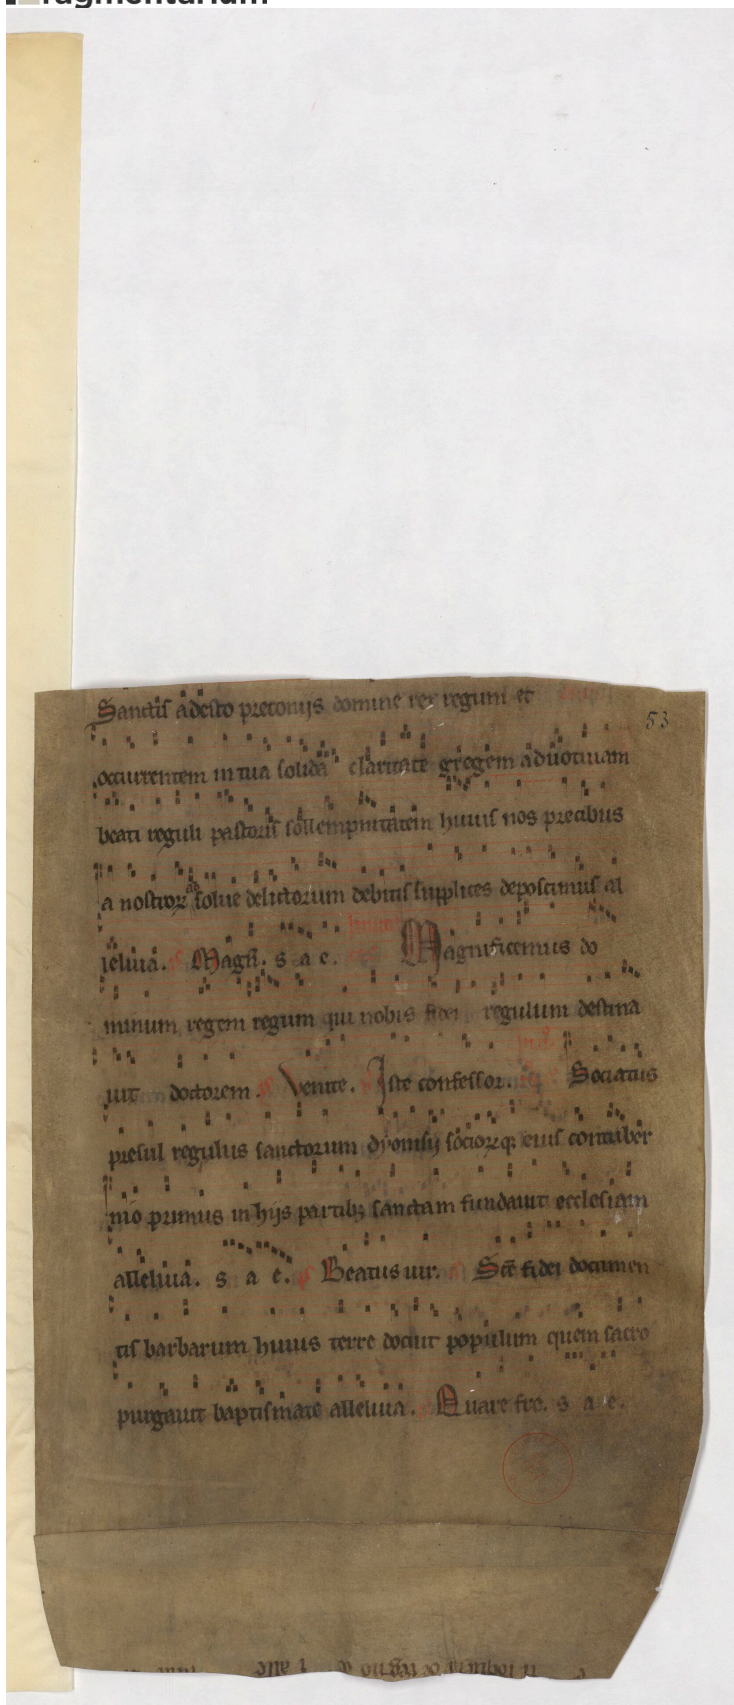 fragmentarium
Sanctis adesto preconijs domine rex regum et
53
occurrentem in tua solida claritate gregem aduotiuam
beati reguli pastoris sollempnitatem huius nos precibus
a nostroꝝ ab solue delictorum debitis supplices deposcimus al
leluia. ps Magn̄. s a e. Magnificemus do
minum regem regum qui nobis fidei regulum destina
uit doctorem. ps Venite. Iste confessor. Sociatus
presul regulus sanctorum dyonisij socioꝝq; eius contuber
nio primus in hijs partibꝫ sanctam fundauit ecclesiam
alleluia. s a e. ps Beatus uir. Sc̄e fidei documen
tis barbarum huius terre docuit populum quem sacro
purgauit baptismate alleluia. Quare fre. s a e.